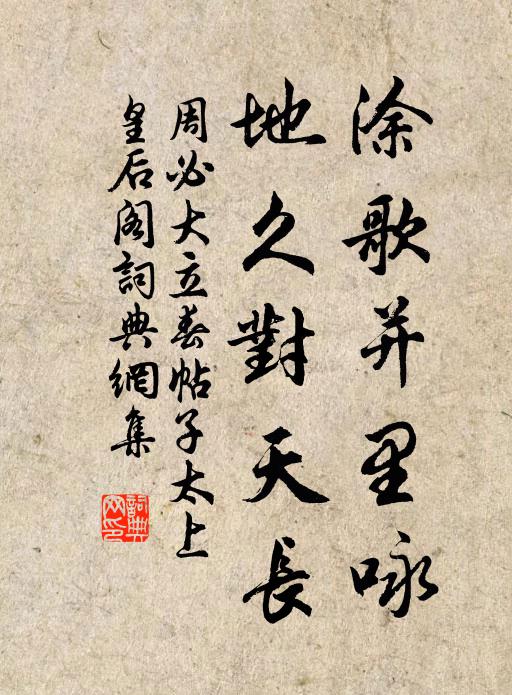 涂歌并里咏
地久對天長
周必大立春帖子太上
皇后阁詞典網集
詞典
网印